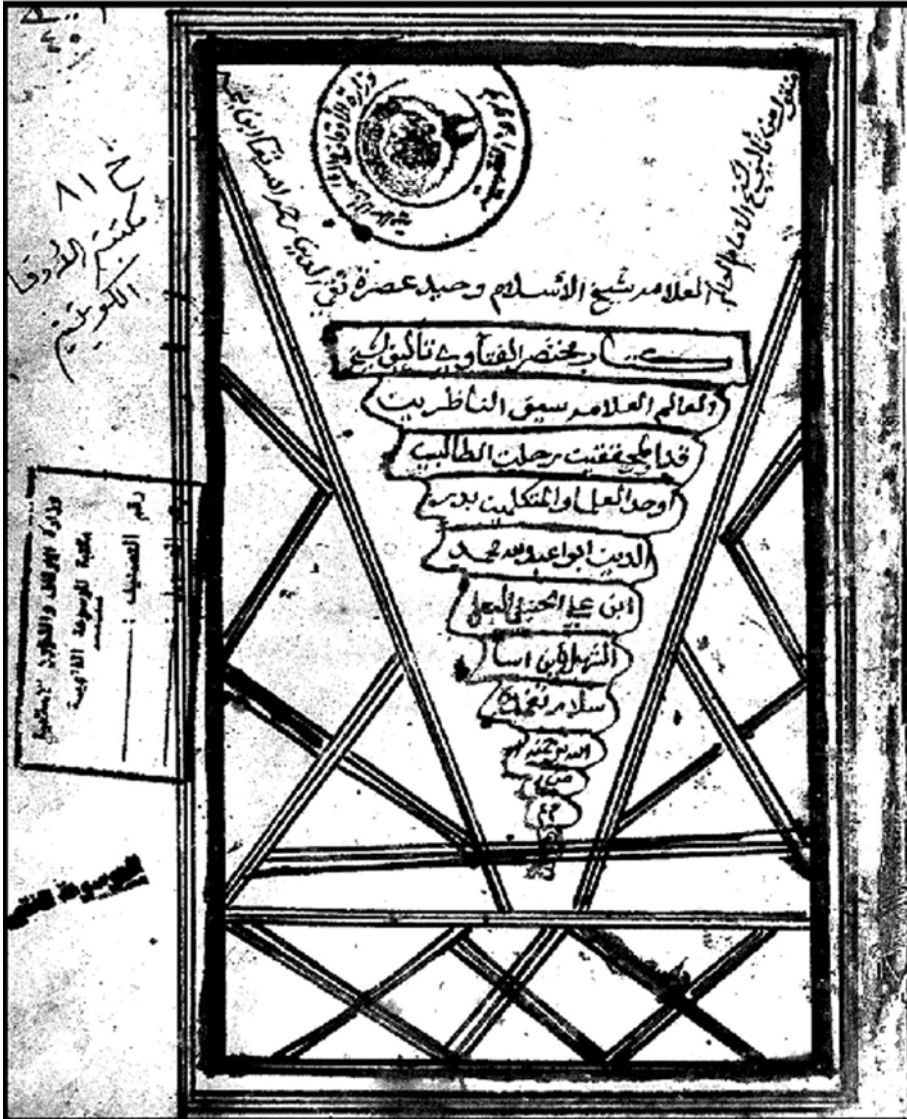 خ ٨١
مكتبة الأوقاف
الكويتية
منقول من تأليف الشيخ الامام العالم
العلامه شيخ الاسلام وحيد عصره تقي الدين
كتاب مختصر الفتاوي تأليف الشيخ
العالم العلامه سيق الناظرين
قدوة المحققين رحلت الطالبين
اوحد العلما والمتكلمين بدر
الدين ابو عبدالله محمد
ابن علي الحنبلي البعلي
الشهير بابن اسبا
سلار تغمده
الله برحمته
وزارة الأوقاف والشئون الاسلامية
مكتبة الموسوعة الفقهية
رقم التصنيف :
الموسوعة الفقهية